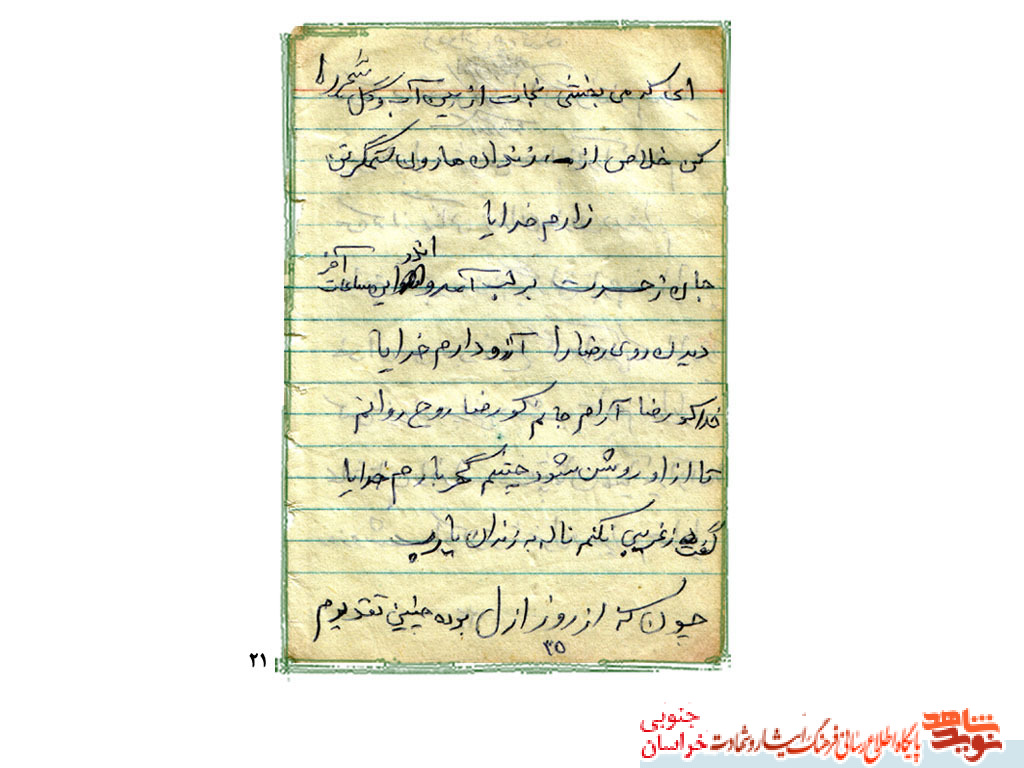 ای که می بخشی نجات از بین آب و گل شجر را
کن خلاص از زندان هارون ستمگر تن
زارم خدایا
جان ز حسرت بر لب آمد و اندر این ساعات آخر
دیدن روی رضا را آرزو دارم خدایا
خدا کو رضا آرام جانم کو رضا روح روانم
تا از او روشن شود چشم گهر بارم خدایا
گفت ز غریبی نکنم ناله به زندان یا رب
چون که از روز ازل بوده چنین تقدیرم
۳۵
۲۱
نوید شاهد
پایگاه اطلاع رسانی فرهنگ ایثار و شهادت
خراسان جنوبی